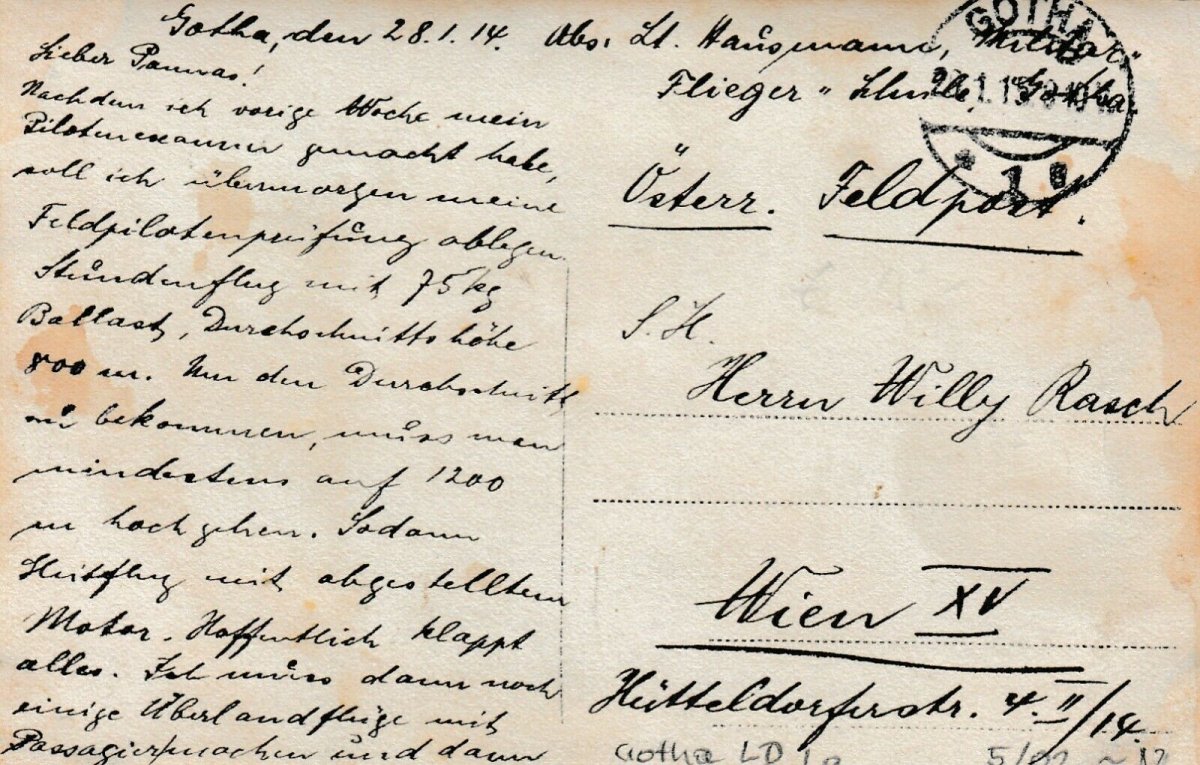 Gotha, den 28.1.14.
Lieber Pamvas!
Nachdem ich vorige Woche mein
Pilotenexamen gemacht habe,
soll ich übermorgen meine
Feldpilotenprüfung ablegen.
Stundenflug mit 75 kg
Ballast, Durchschnittshöhe
800 m. Um den Durchschnitt
zu bekommen, muss man
mindestens auf 1200
m hoch gehen. Sodann
mit abgestelltem
Motor. Hoffentlich klappt
alles. Ich muss dann noch
einige Überlandflüge mit
Passagier machen und dann
Abs: Lt. Hausmann, „Militär"
Flieger" Schule, Gotha
GOTHA
1
Österr. Feldpost.
S. H.
Herrn Willy Rasch
Wien XV
Hütteldorferstr. 4. II/14.
Gotha LD